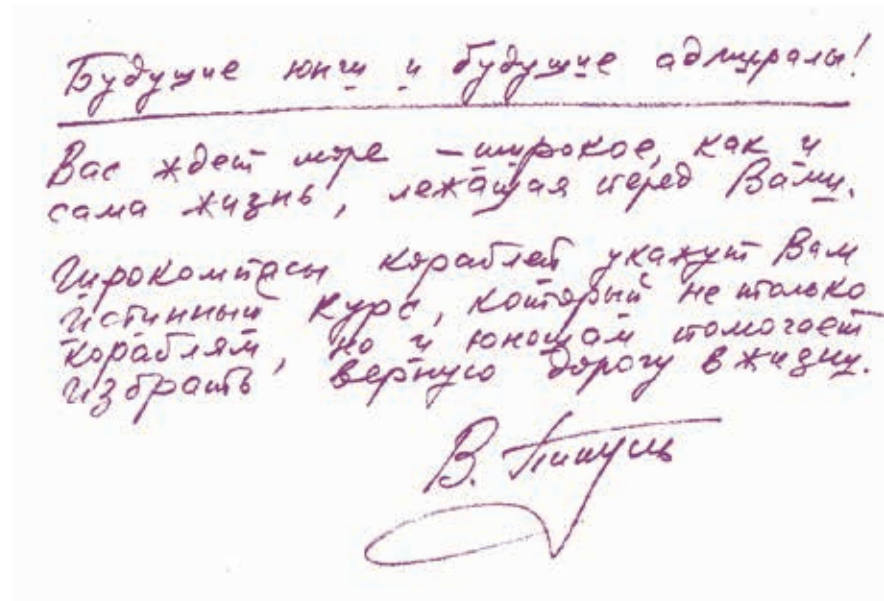 Будущие юнги и будущие адмиралы!
Вас ждет море – широкое, как и
сама жизнь, лежащая перед Вами.
Гирокомпасы кораблей укажут Вам
истинный курс, который не только
кораблям, но и юношам помогает
избрать верную дорогу в жизни.
В. Пикуль